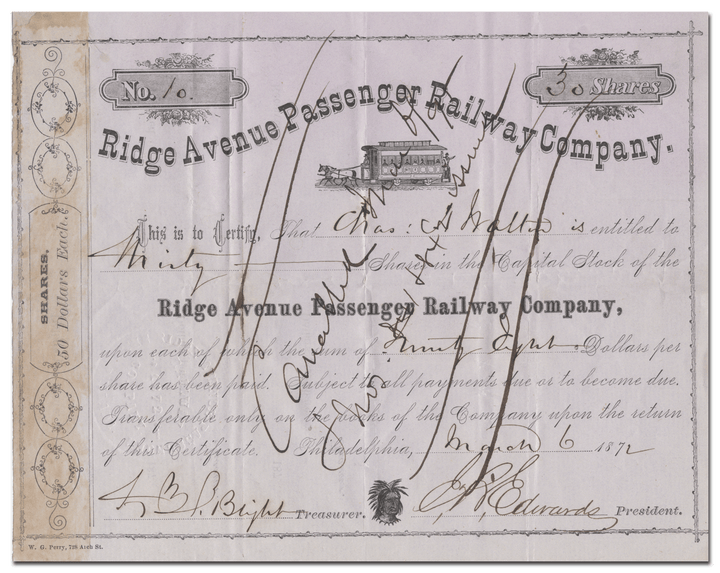 No. 10.
30 Shares
Ridge Avenue Passenger Railway Company.
This is to Certify, That Chas: W Walton is entitled to
Thirty Shares in the Capital Stock of the
Ridge Avenue Passenger Railway Company,
upon each of which the sum of Twenty Eight Dollars per
share has been paid. Subject to all payments due or to become due.
Transferable only on the books of the Company upon the return
of this Certificate. Philadelphia, March 6 1872
Bright Treasurer. Edwards President.
SHARES,
50 Dollars Each.
Cancelled
issued
W. G. Perry, 728 Arch St.